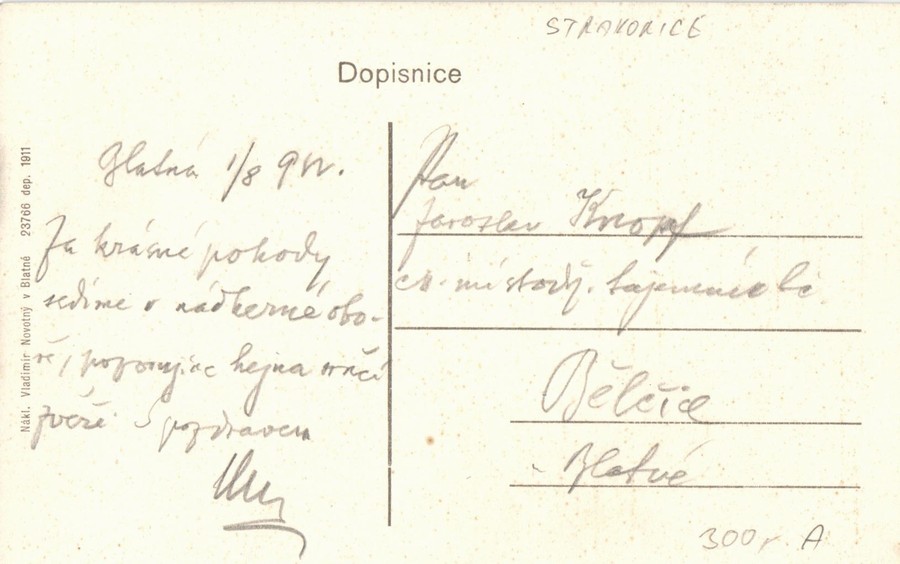 STRAKONICE
Dopisnice
Nákl. Vladimír Novotný v Blatné 23766 dep. 1911
Blatná 1/8
Za krásné pohody
sedíme v nádherné obo-
ře, pozorujíc hejna srnčí
zvěře. S pozdravem
Pan
Jaroslav Knopf
místodž. tajemník
Bělčice
Blatné
300,- A